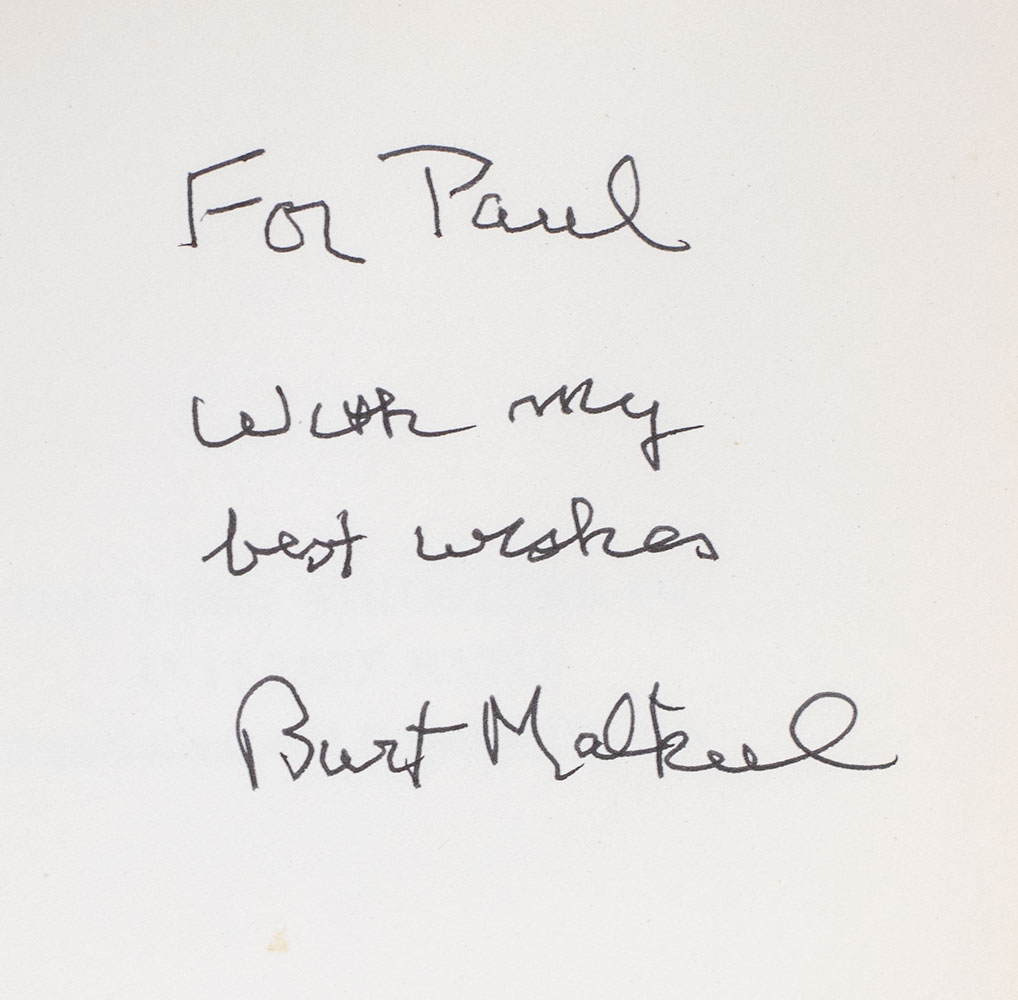 For Paul
With my
best wishes
Burt Malkiel